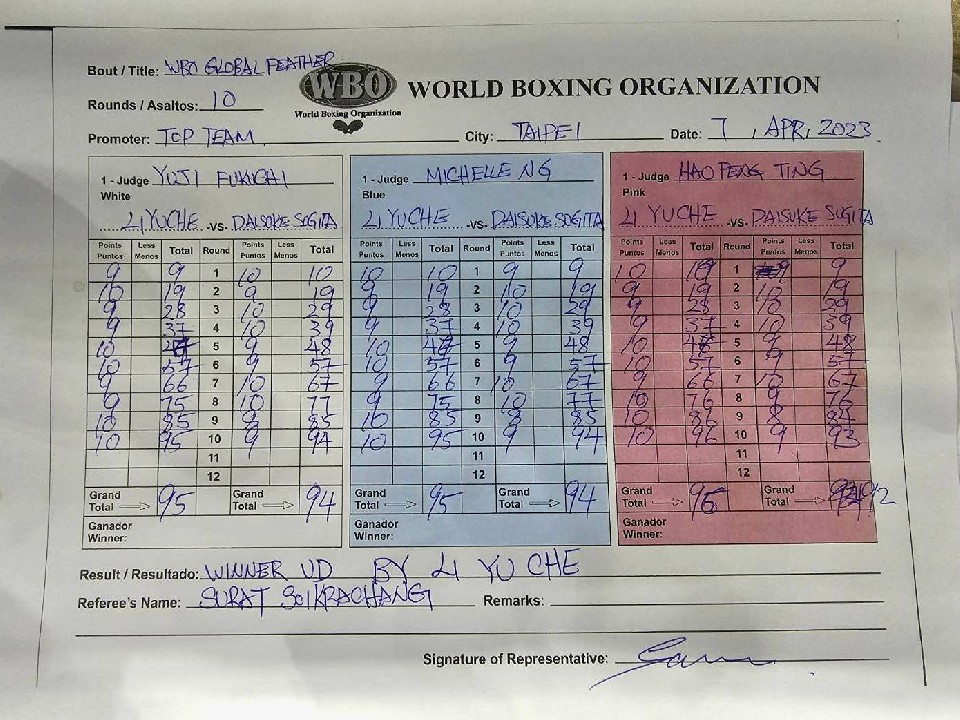 Bout / Title: WBO GLOBAL FEATHER
WBO
World Boxing Organization
WORLD BOXING ORGANIZATION
Rounds / Asaltos: 10
Promoter: TOP TEAM City: TAIPEI Date: 7, APR, 2023
1 - Judge YUJI FUKUCHI 1 - Judge MICHELLE NG 1 - Judge HAO PENG TING
White Blue Pink
LI YUCHE -VS- DAISUKE SUGITA LI YUCHE -VS- DAISUKE SUGITA LI YUCHE -VS- DAISUKE SUGITA
Points Less Total Round Points Less Total Points Less Total Round Points Less Total Points Less Total Round Points Less Total
Puntos Menos Puntos Menos Puntos Menos Puntos Menos Puntos Menos Puntos Menos
9 9 1 10 10 10 10 1 9 9 10 19 1 9 9
10 19 2 9 19 9 19 2 10 19 9 19 2 10 19
9 28 3 10 29 9 28 3 10 29 9 28 3 10 29
9 37 4 10 39 9 37 4 10 39 9 37 4 10 39
10 5 9 48 10 5 9 48 10 5 9 48
10 57 6 9 57 10 57 6 9 57 10 57 6 9 57
9 66 7 10 67 9 66 7 10 67 9 66 7 10 67
9 75 8 10 77 9 75 8 10 77 10 76 8 9 76
10 85 9 8 85 10 85 9 8 85 10 86 9 8
10 95 10 9 94 10 95 10 9 94 10 96 10 9 93
11 11 11
12 12 12
Grand Total 95 Grand Total 94 Grand Total 95 Grand Total 94 Grand Total 96 Grand Total
Ganador Ganador Ganador
Winner: Winner: Winner:
Result / Resultado: WINNER UD BY LI YU CHE
Referee's Name: SURAT SOIKRACHANG Remarks:
Signature of Representative: